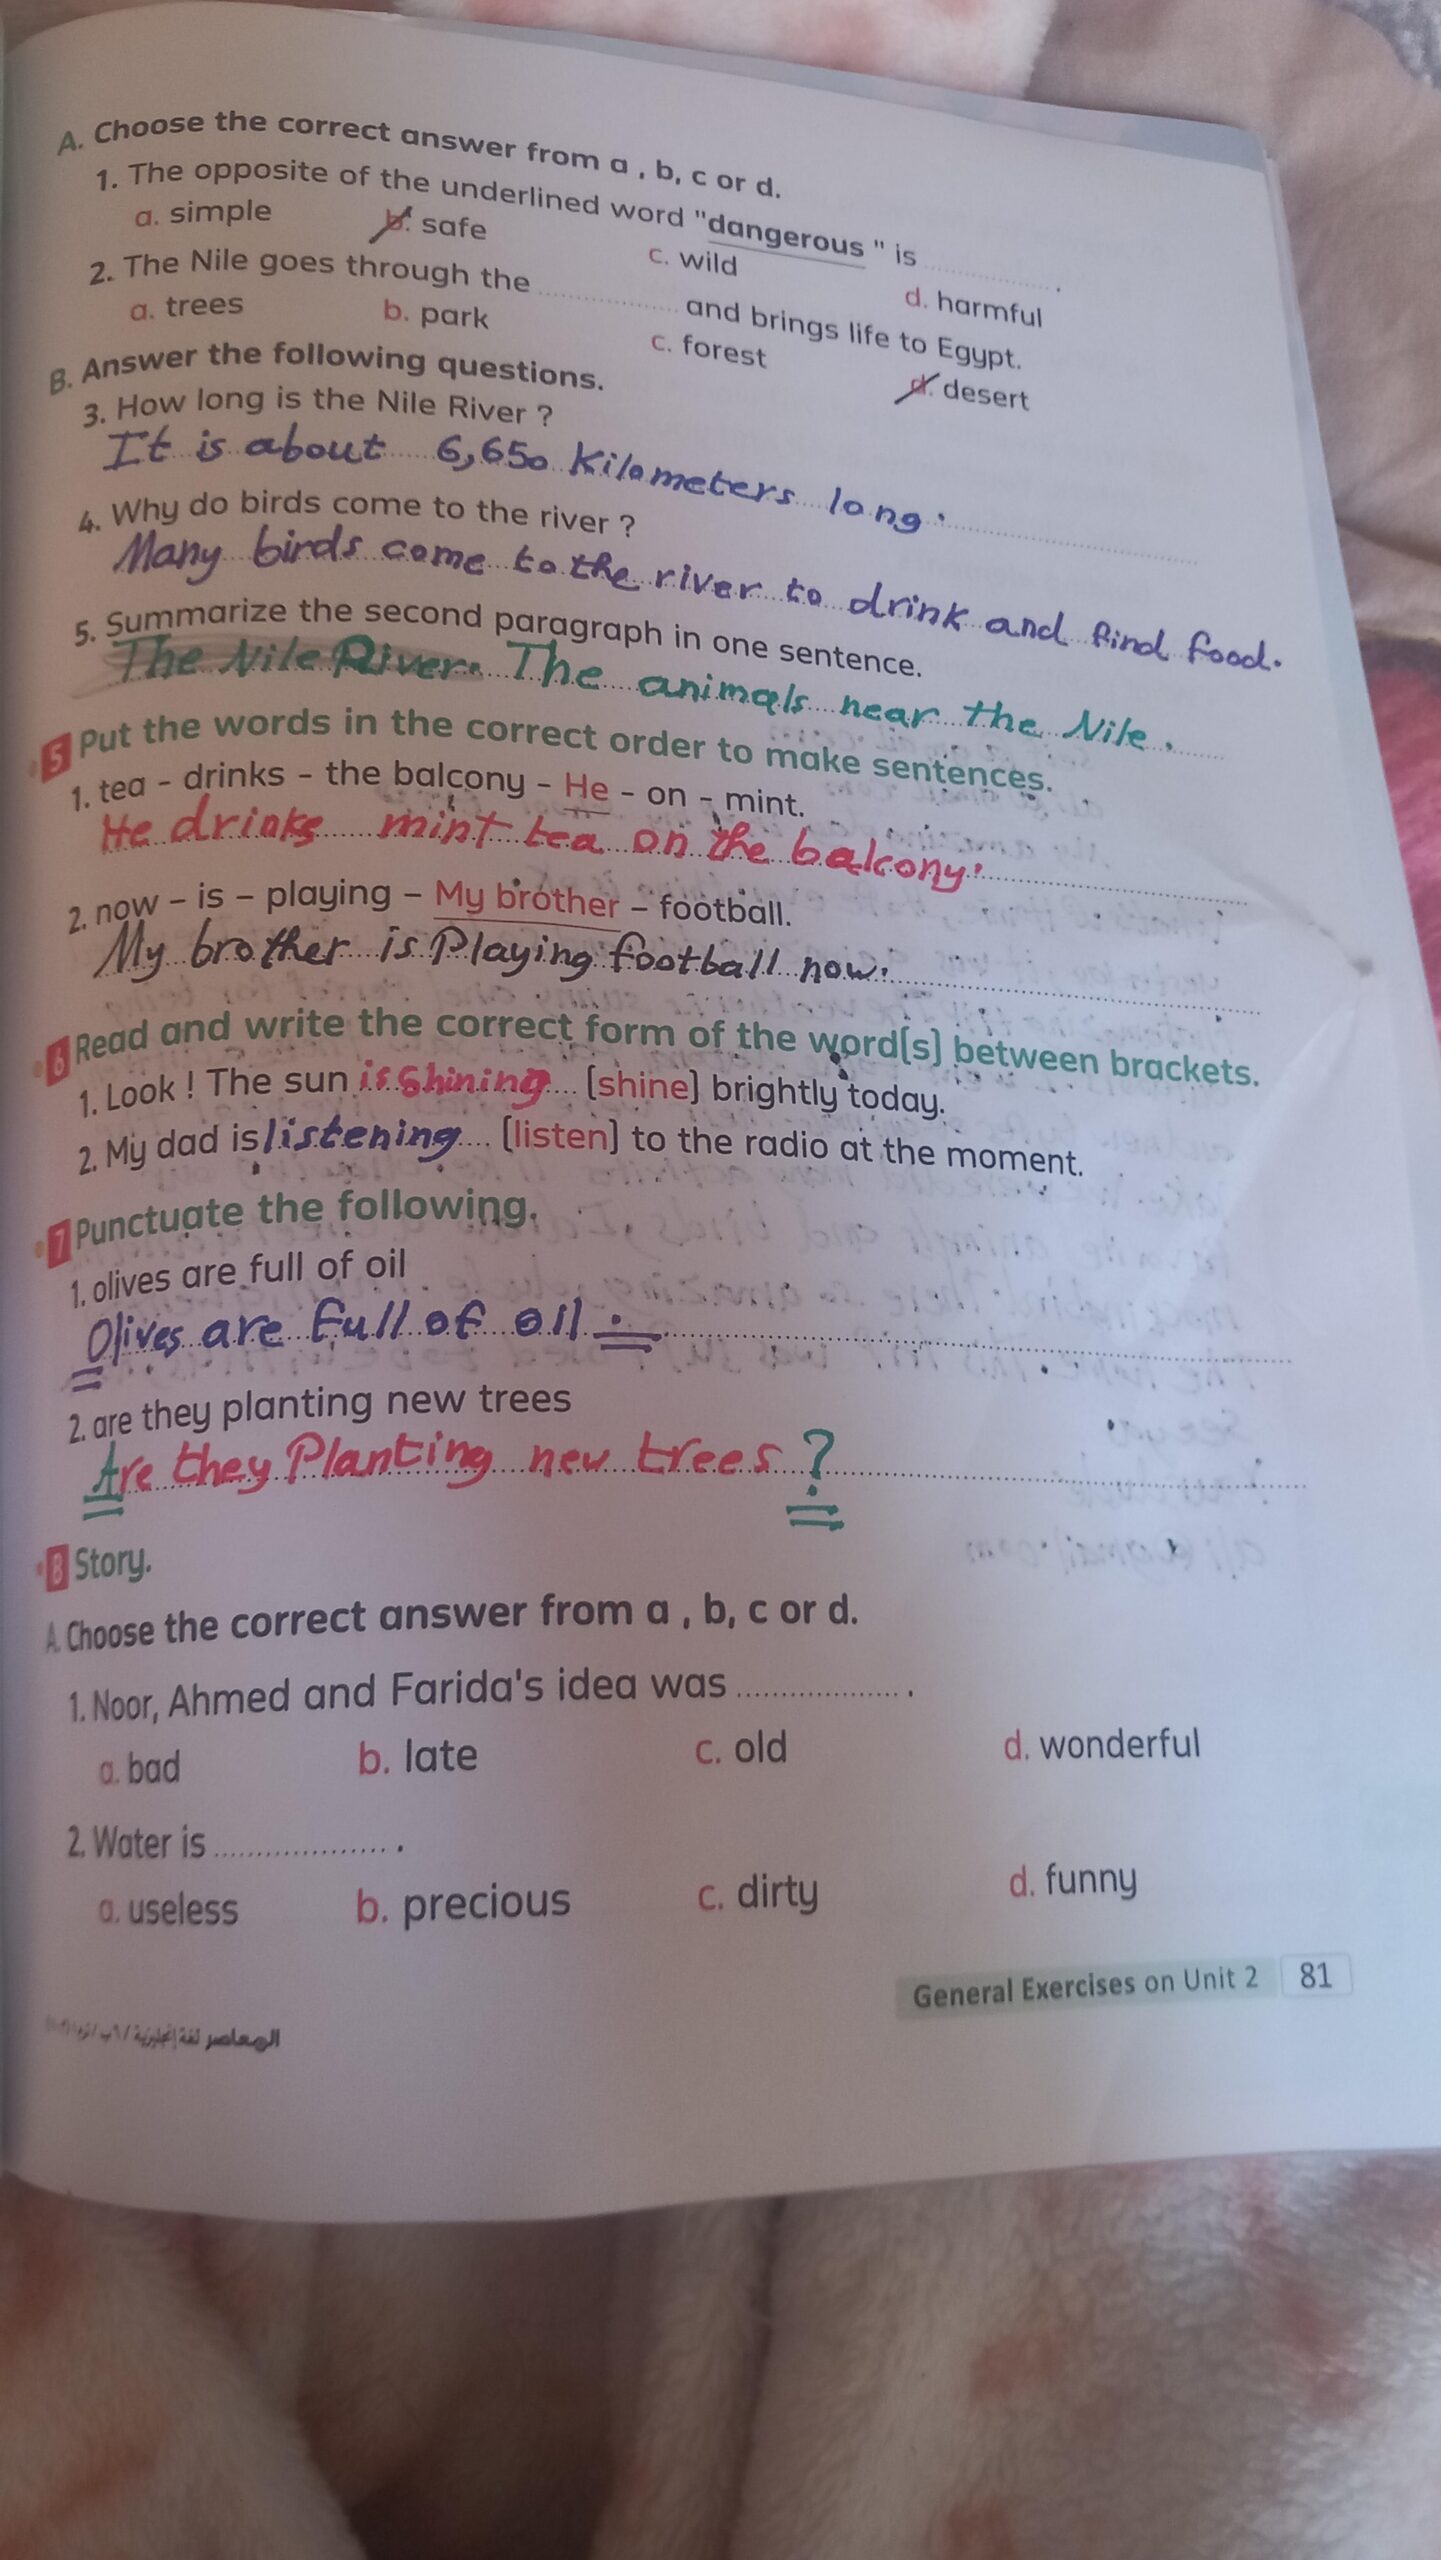 A. Choose the correct answer from a , b, c or d.
1. The opposite of the underlined word "dangerous " is ............ .
a. simple b. safe c. wild d. harmful
2. The Nile goes through the ............ and brings life to Egypt.
a. trees b. park c. forest d. desert
B. Answer the following questions.
3. How long is the Nile River ?
It is about 6,650 Kilometers long.
4. Why do birds come to the river ?
Many birds come to the river to drink and find food.
5. Summarize the second paragraph in one sentence.
The Nile River. The animals near the Nile.
5 Put the words in the correct order to make sentences.
1. tea - drinks - the balcony - He - on - mint.
He drinks mint tea on the balcony.
2. now – is – playing – My brother – football.
My brother is Playing football now.
6 Read and write the correct form of the word(s) between brackets.
1. Look ! The sun is shining (shine) brightly today.
2. My dad is listening (listen) to the radio at the moment.
7 Punctuate the following.
1. olives are full of oil
Olives are full of oil .
2. are they planting new trees
Are they Planting new trees ?
8 Story.
A. Choose the correct answer from a , b, c or d.
1. Noor, Ahmed and Farida's idea was .................. .
a. bad b. late c. old d. wonderful
2. Water is .................. .
a. useless b. precious c. dirty d. funny
General Exercises on Unit 2 81
المعاصر لغة إنجليزية